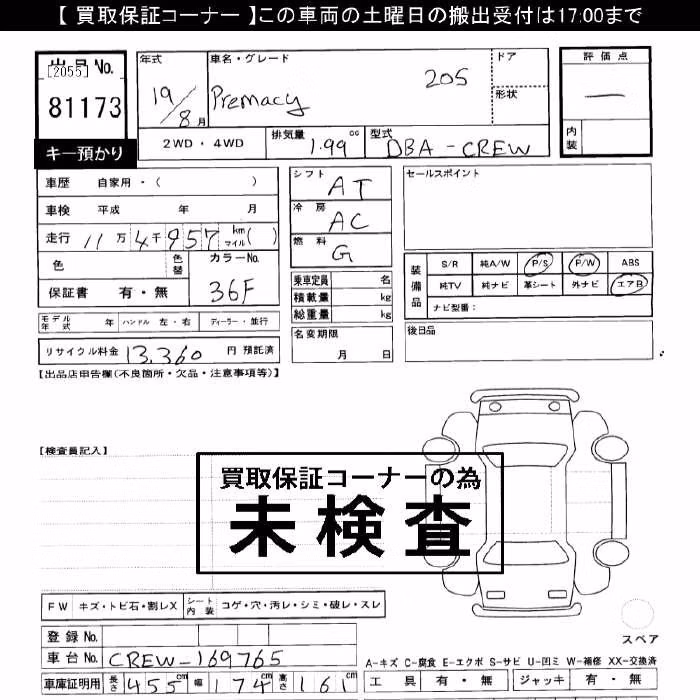 【 買取保証コーナー 】この車両の土曜日の搬出受付は17:00まで
出品No.
[2055]
81173
キー預かり
年式
19/8月
車名・グレード
Premacy 20S
ドア
形状
評価点
—
内装
2WD・4WD
排気量 1.99 cc
型式 DBA-CREW
車歴 自家用・( )
車検 平成 年 月
走行 11万4千957 km マイル( )
色
色替
カラーNo.
36F
保証書 有・無
シフト AT
冷房 AC
燃料 G
乗車定員 名
積載量 kg
総重量 kg
セールスポイント
装備品
S/R 純A/W P/S P/W ABS
純TV 純ナビ 革シート 外ナビ エアB
ナビ型番:
モデル年式 年 ハンドル 左・右 ディーラー・並行
名変期限
月 日
後日品
リサイクル料金 13,360 円 預託済
【出品店申告欄(不良箇所・欠品・注意事項等)】
【検査員記入】
買取保証コーナーの為
未検査
FW キズ・トビ石・割レX シート内装 コゲ・穴・汚レ・シミ・破レ・スレ
スペア
登録No.
車台No. CREW-169765
A-キズ C-腐食 E-エクボ S-サビ U-凹ミ W-補修 XX-交換済
車庫証明用 長さ 455cm 幅 174cm 高さ 161cm
工具 有・無 ジャッキ 有・無